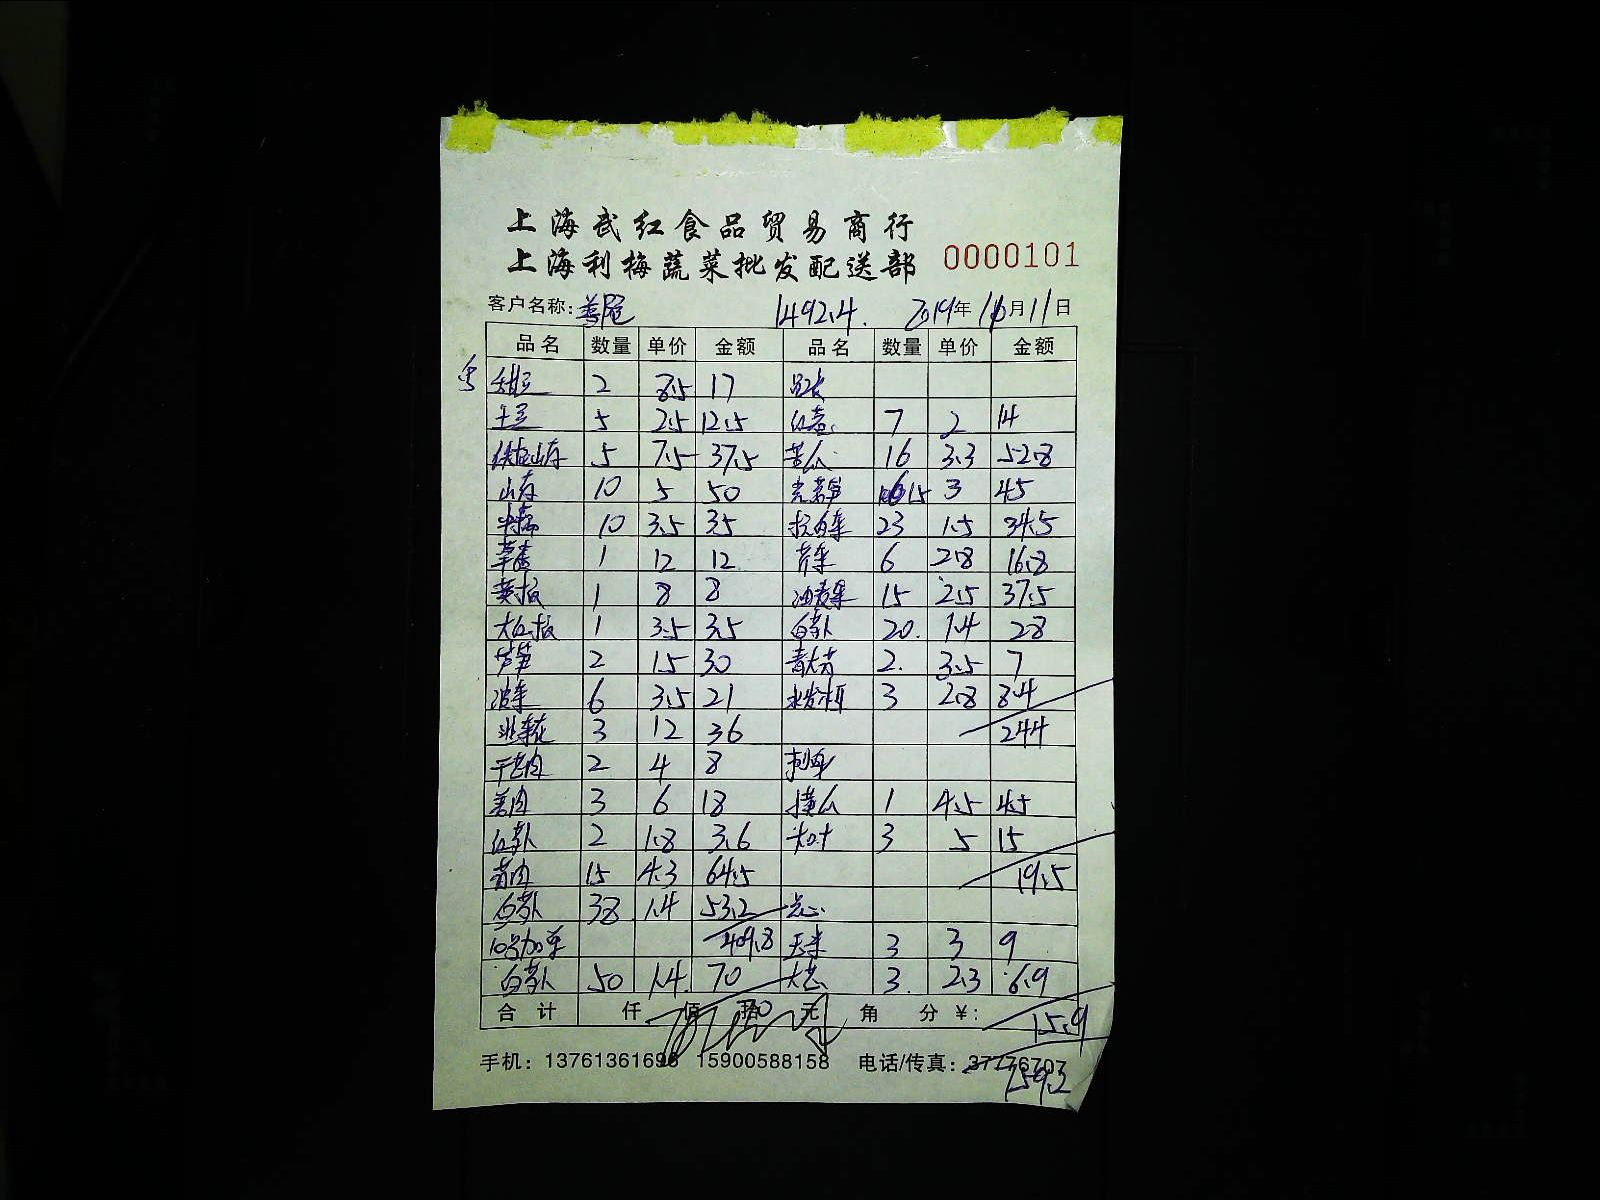 上海武红食品贸易商行
上海利梅蔬菜批发配送部 0000101
客户名称: 1492.4. 2019年10月11日
品名 数量 单价 金额 品名 数量 单价 金额
甜豆 2 8.5 17
土豆 5 2.5 12.5 7 2 14
铁棍山药 5 7.5 37.5 苦瓜 16 3.3 52.8
山药 10 5 50 15 3 45
10 3.5 35 杭白菜 23 1.5 34.5
草 1 12 12 芹菜 6 2.8 16.8
黄椒 1 8 8 油麦菜 15 2.5 37.5
大红椒 1 3.5 3.5 白萝卜 20. 1.4 28
芦笋 2 15 30 2. 3.5 7
菠菜 6 3.5 21 水发木耳 3 2.8 8.4
韭菜花 3 12 36 244
2 4 8
姜肉 3 6 18 1 4.5 4.5
红萝卜 2 1.8 3.6 大叶 3 5 15
15 4.3 64.5 19.5
白萝卜 38 1.4 53.2 点心
10号加单 409.8 玉米 3 3 9
白萝卜 50 1.4 70 3. 2.3 6.9
合计 仟 佰 拾 元 角 分 ¥: 15.9
手机: 13761361696 15900588158 电话/传真: 37776707